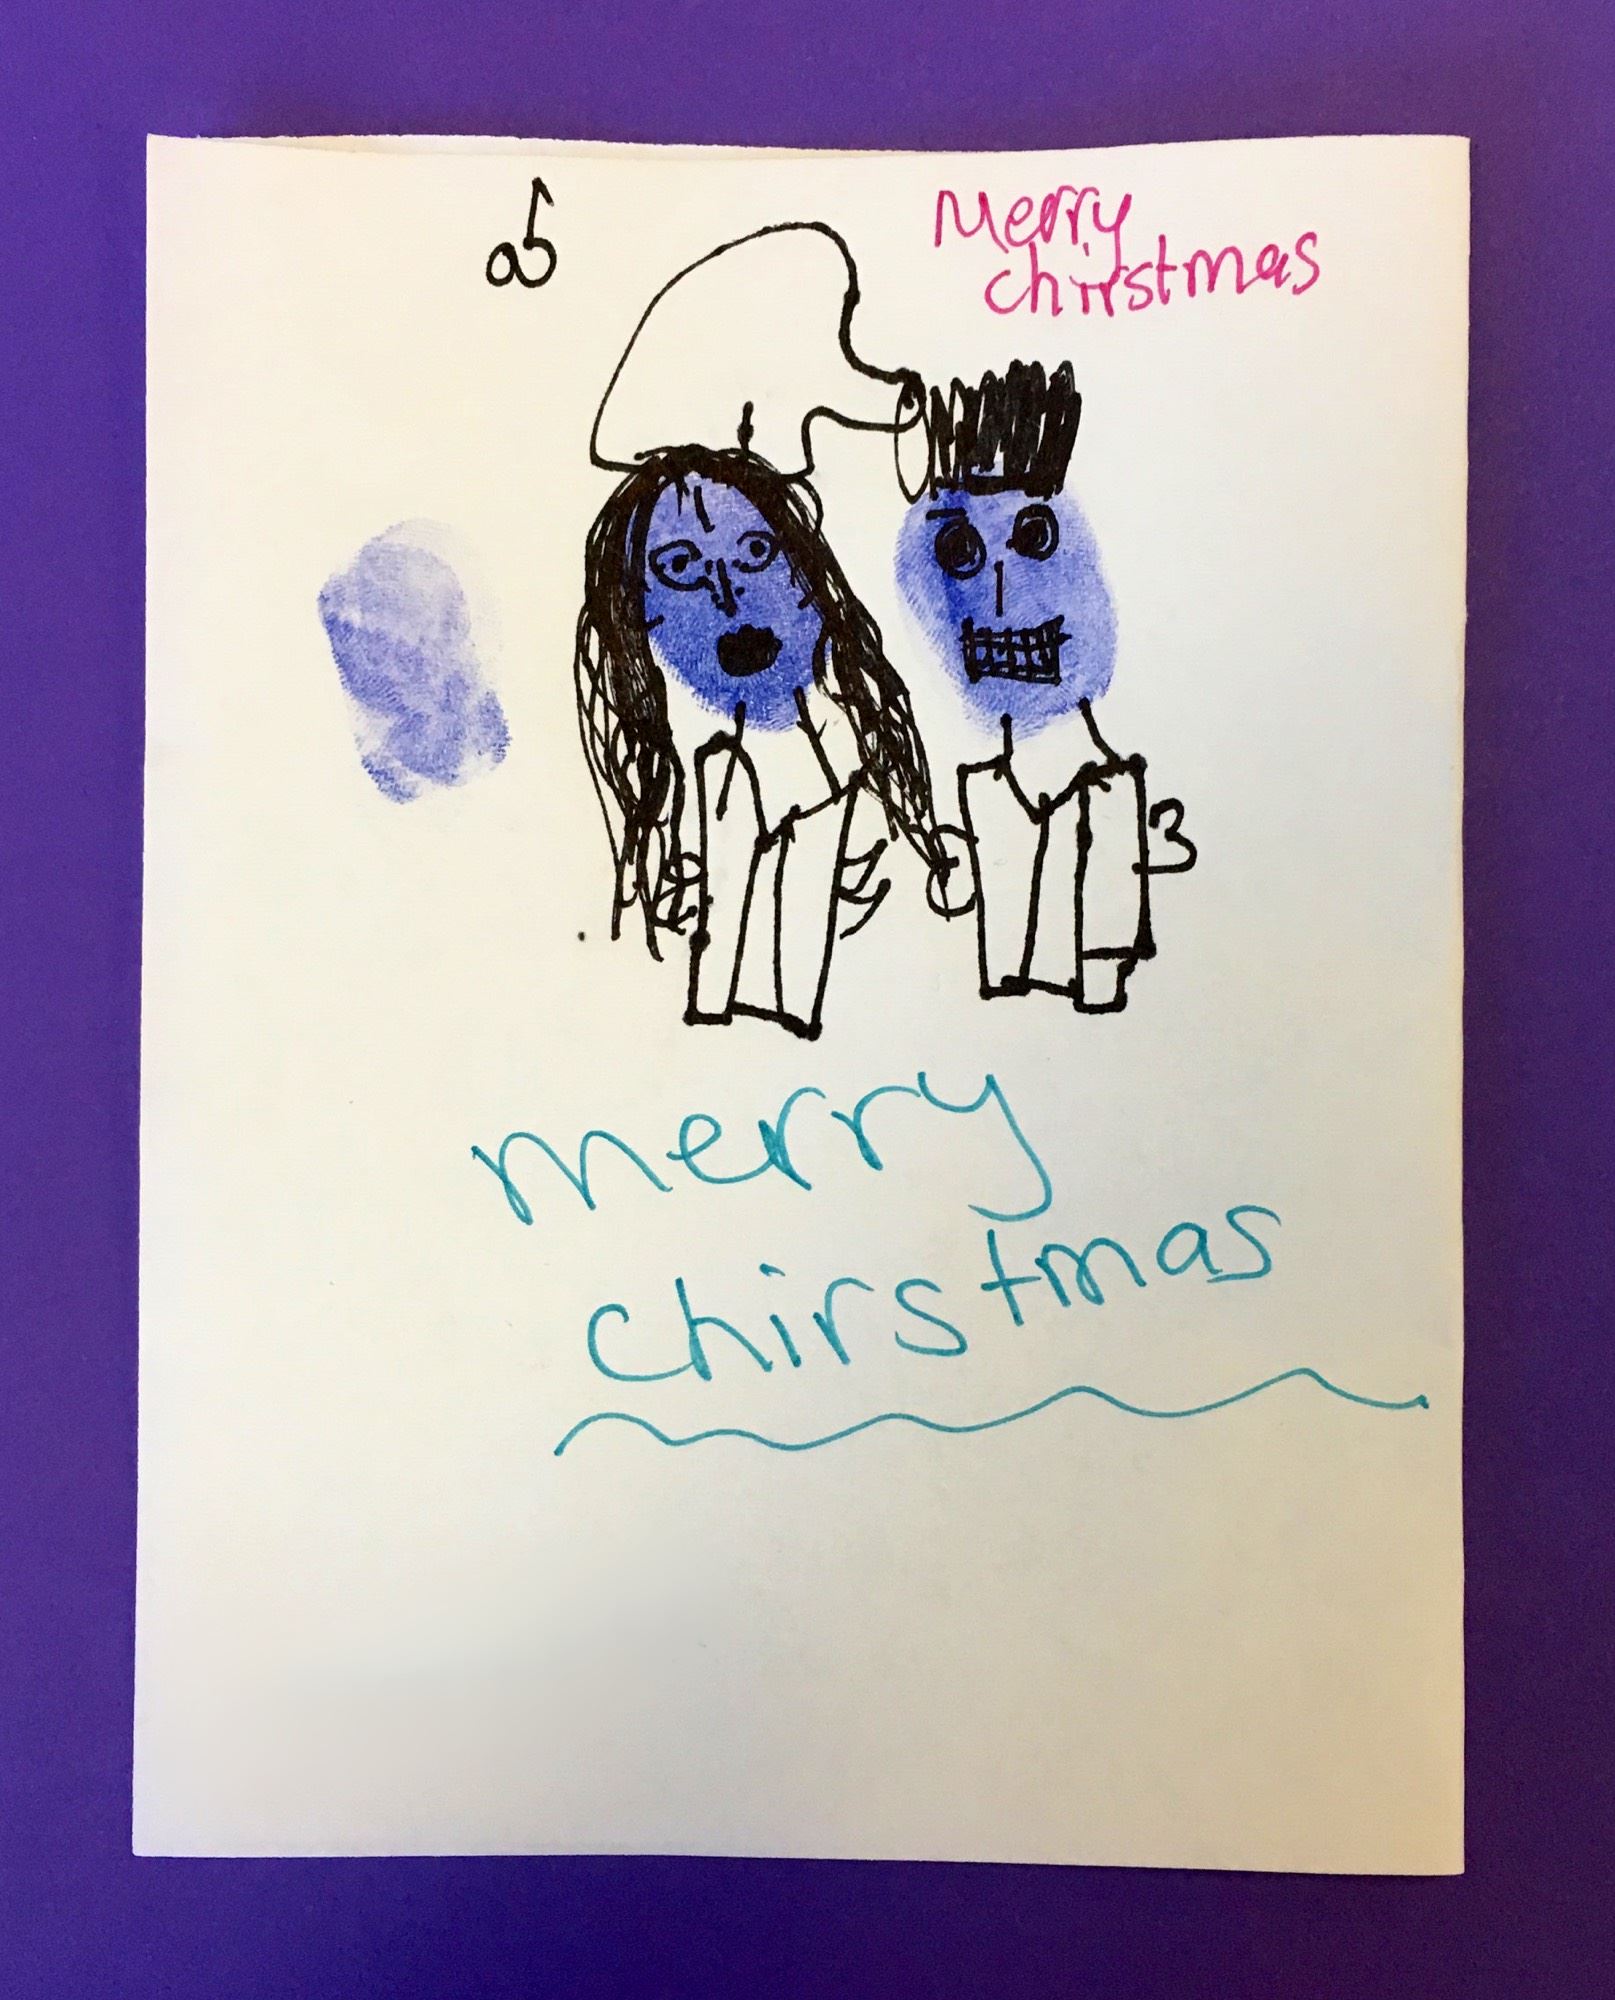 Merry
chirstmas
merry
chirstmas